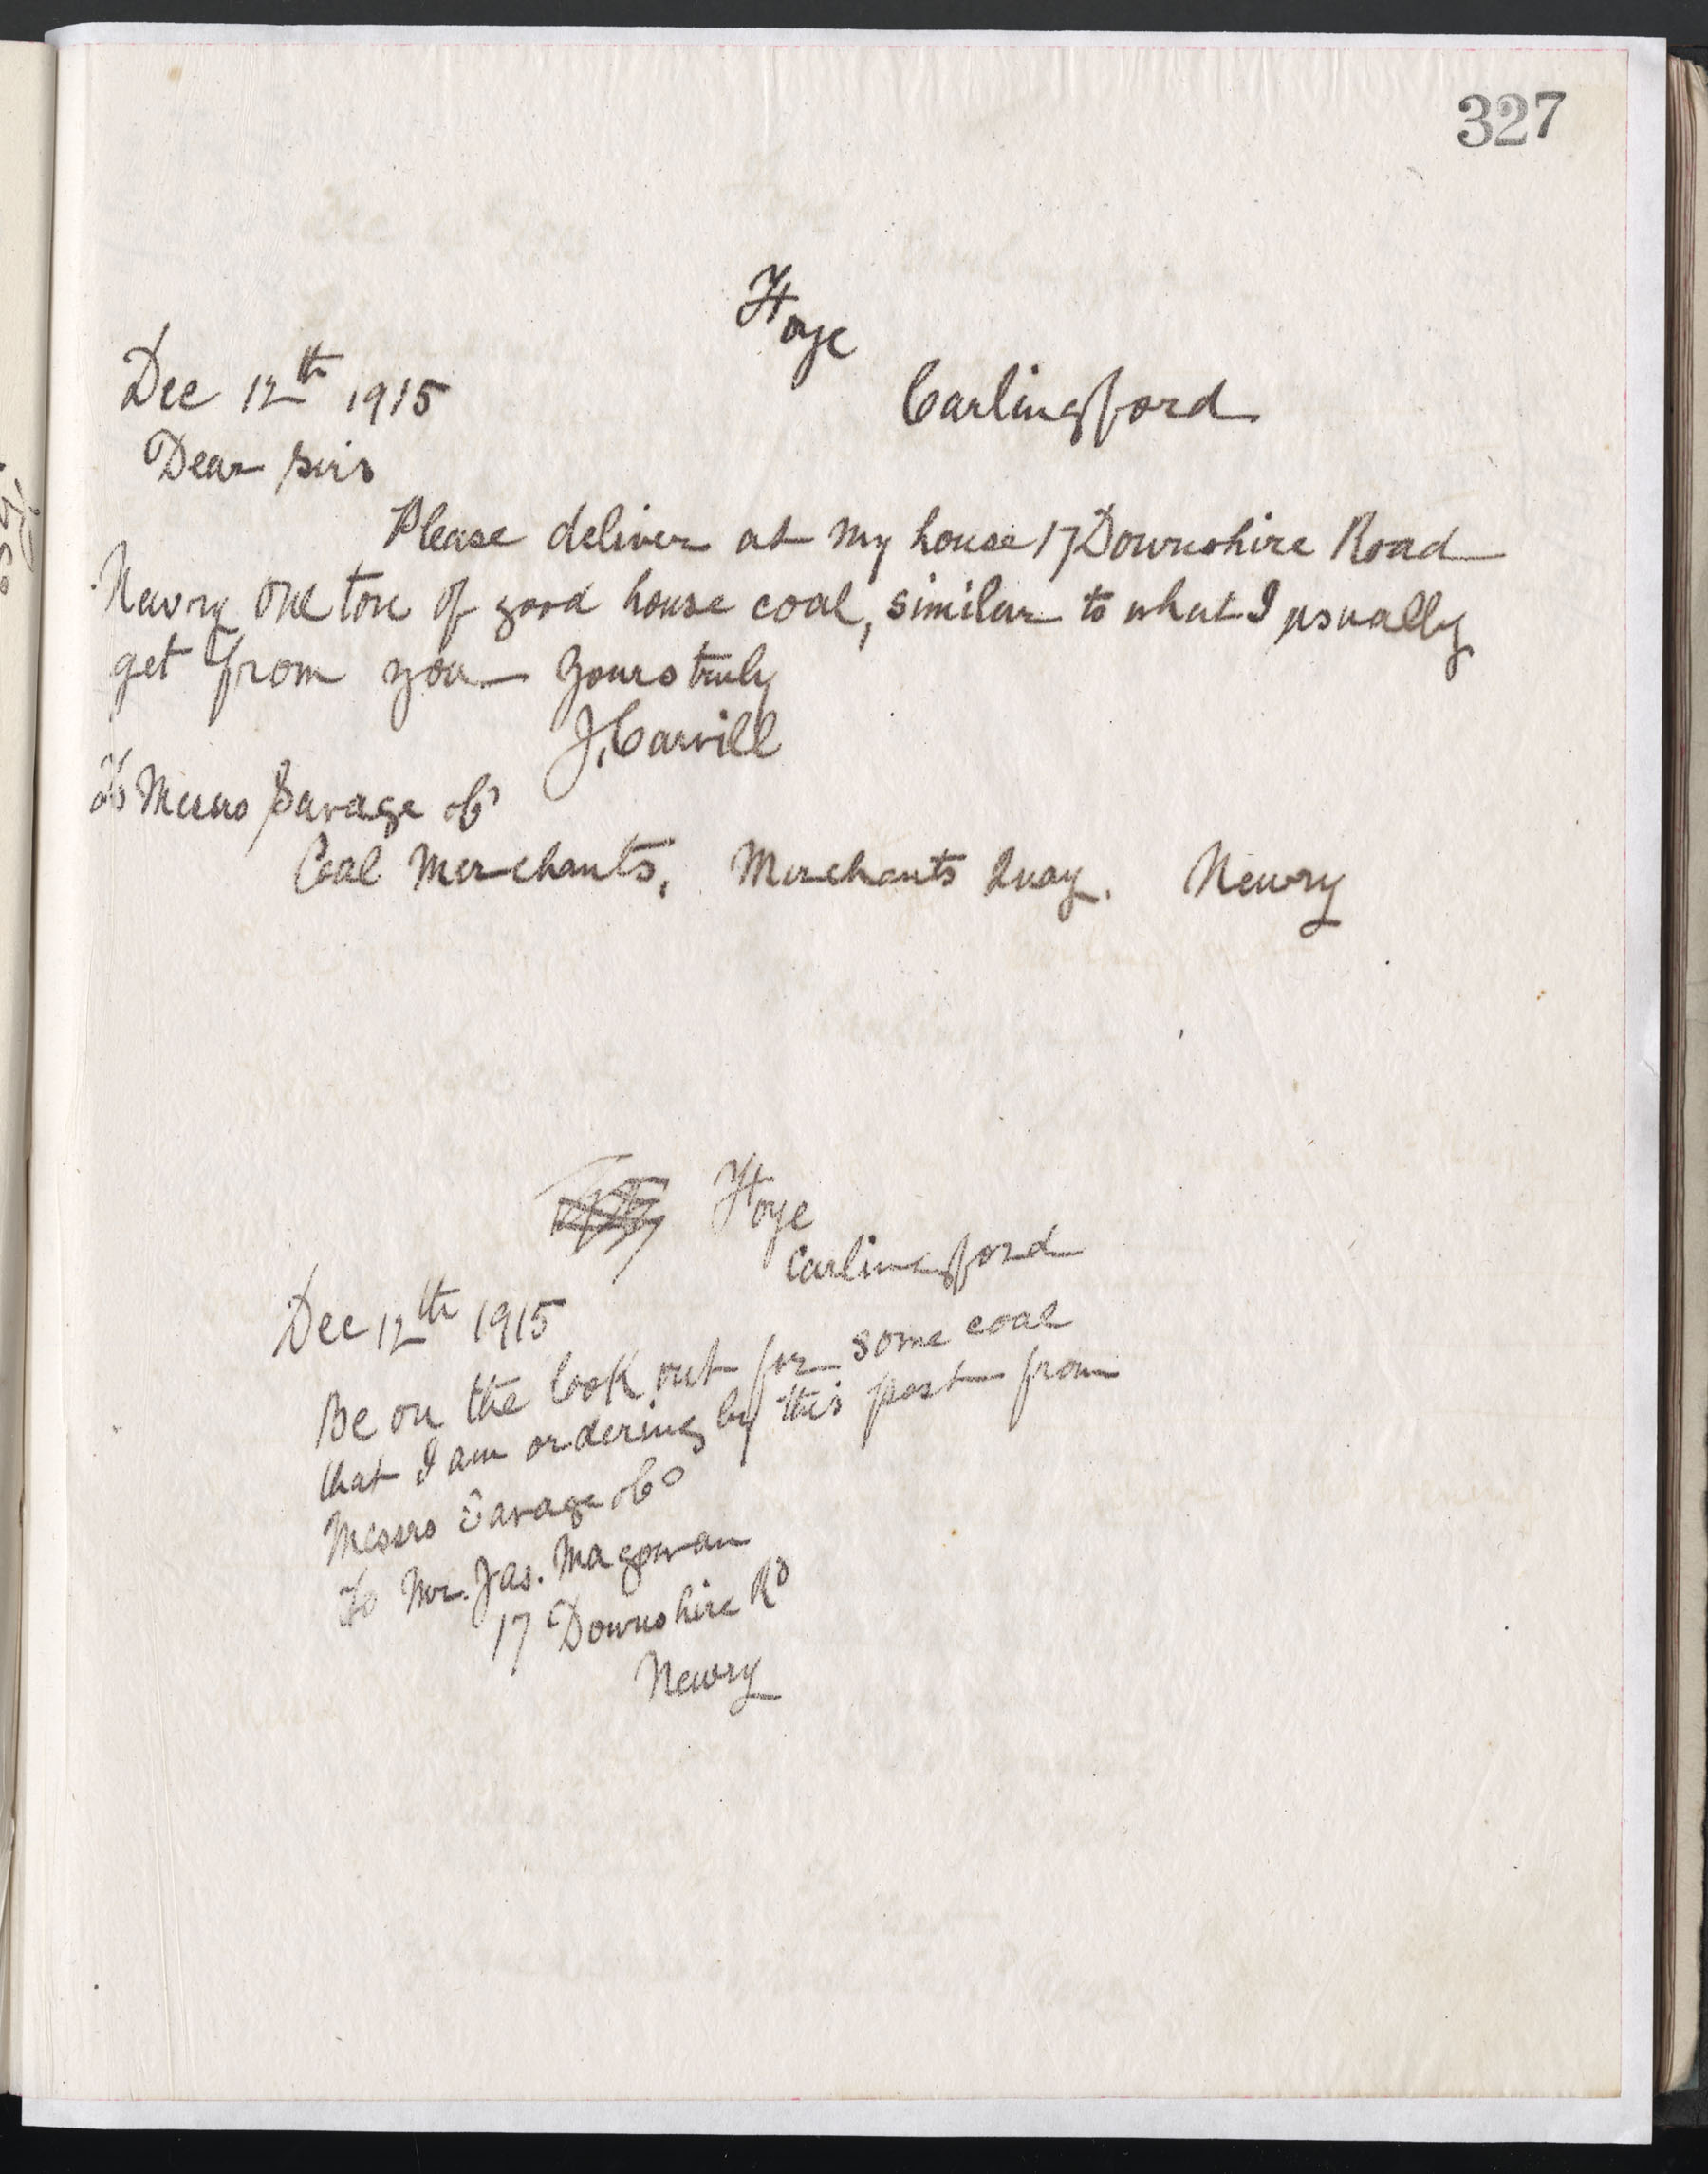 327
Hoye
Carlingford
Dec 12th 1915
Dear Sirs
Please deliver at my house 17 Downshire Road
Newry one ton of good house coal, similar to what I usually
get from you Yours truly
J. Carvill
To Messrs Savage & Co
Coal Merchants, Merchants Quay. Newry
Hoye
Carlingford
Dec 12th 1915
Be on the look out for some coal
that I am ordering by this post from
Messrs Savage & Co
To Mr. Jas. Magowan
17 Downshire Rd
Newry